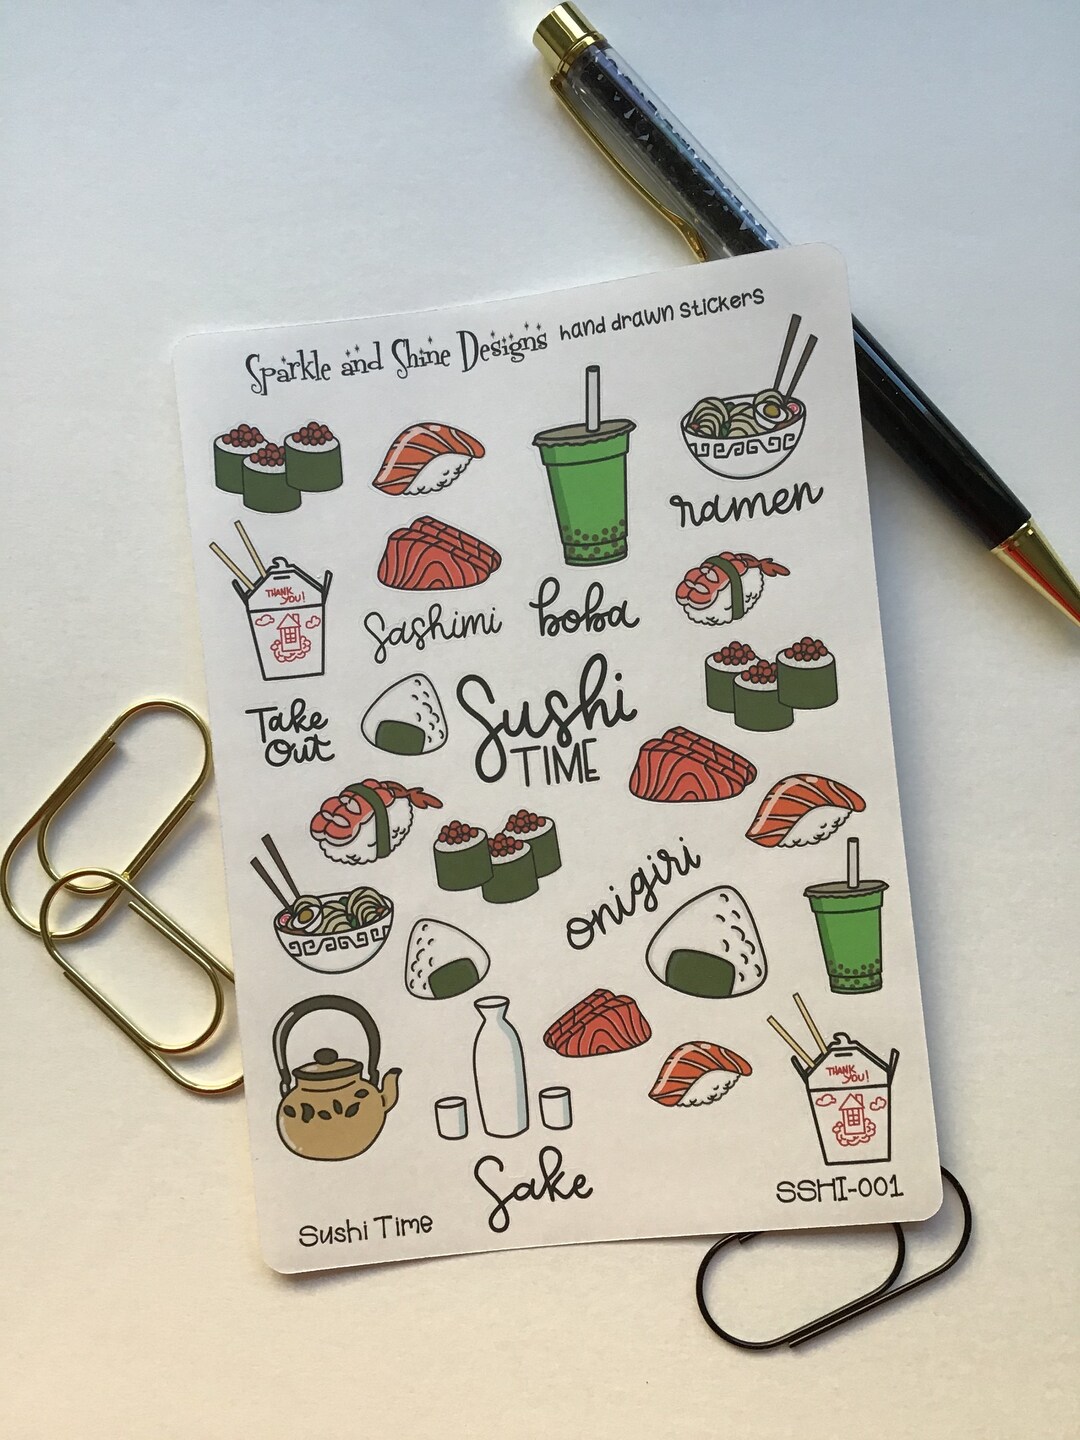 Sparkle and Shine Designs hand drawn stickers
ramen
THANK YOU!
Sashimi
boba
Take
Out
Sushi
TIME
onigiri
THANK YOU!
Sake
Sushi Time
SSHI-001